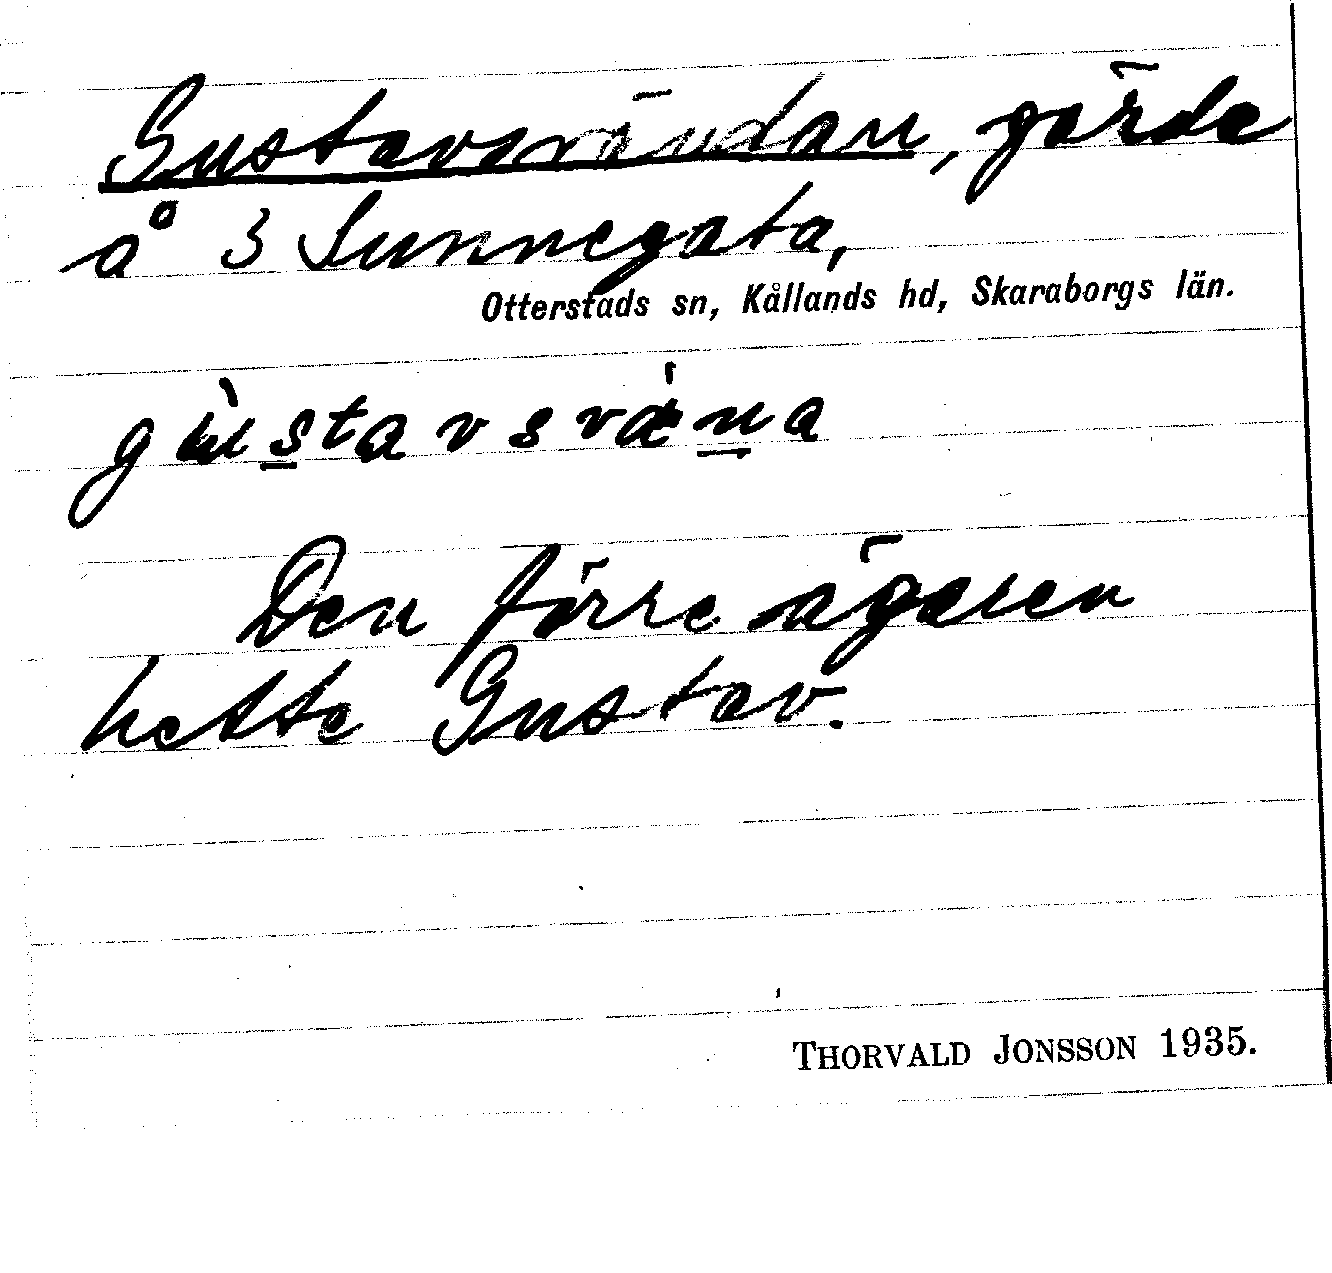 Gustavsrändan, gärde
å 3 Sunnegata,
Otterstads sn, Kållands hd, Skaraborgs län.
Den förre ägaren
hette Gustav.
THORVALD JONSSON 1935.